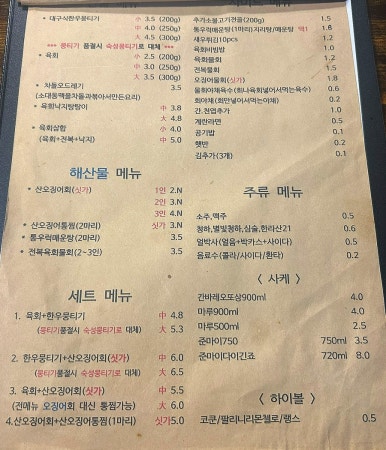 • 대구식한우뭉티기 小 3.5 (200g)
中 4.0 (250g)
大 4.5 (300g)
*** 뭉티기 품절시 숙성뭉티기로 대체 ***
• 육회 小 2.5 (200g)
中 3.0 (250g)
大 3.5 (300g)
• 차돌오드레기 3.5
(소대동맥를차돌과볶아서만든요리)
• 육회낙지탕탕이 中 3.8
大 4.8
• 육회삼합 小 4.0
(육회+전복+낙지) 中 5.0
해산물 메뉴
• 산오징어회(싯가) 1인 2.N
2인 3.N
3인 4.N
• 산오징어통찜(2마리) 싯가 3.N
• 통우럭매운탕(2마리) 3.5
• 전복육회물회(2~3인) 3.5
세트 메뉴
1. 육회+한우뭉티기 中 4.8
(뭉티기품절시 숙성뭉티기로 대체) 大 5.3
2. 한우뭉티기+산오징어회(싯가) 中 6.0
(뭉티기품절시 숙성뭉티기로 대체) 大 6.5
3. 육회+산오징어회(싯가) 中 5.5
(전메뉴 오징어회 대신 통찜가능) 大 6.0
4.산오징어회+산오징어통찜(1마리) 싯가5.0
추가소불고기전골(200g) 1.5
통우럭매운탕(1마리)지리탕/매운탕 택1 1.8
새우튀김10pcs 1.2
육회비빔밥
육회물회
전복물회
오징어물회(싯가) 1.8
물회야채육수(회나육회넣어서먹는육수) 0.6
회야채(회만넣어서먹는야채) 0.3
간,천엽추가 1.0
계란라면 0.5
공기밥 0.1
햇반 0.2
김추가(3개) 0.1
주류 메뉴
소주,맥주 0.5
청하,별빛청하,심술,한라산21 0.6
얼박사(얼음+박카스+사이다) 0.5
음료수(콜라/사이다/환타) 0.2
< 사케 >
간바레오또상900ml 4.0
마루900ml 4.0
마루500ml 2.5
준마이750 750ml 3.5
준마이다이긴죠 720ml 8.0
< 하이볼 >
코쿤/팔리니리몬첼로/랭스 0.5